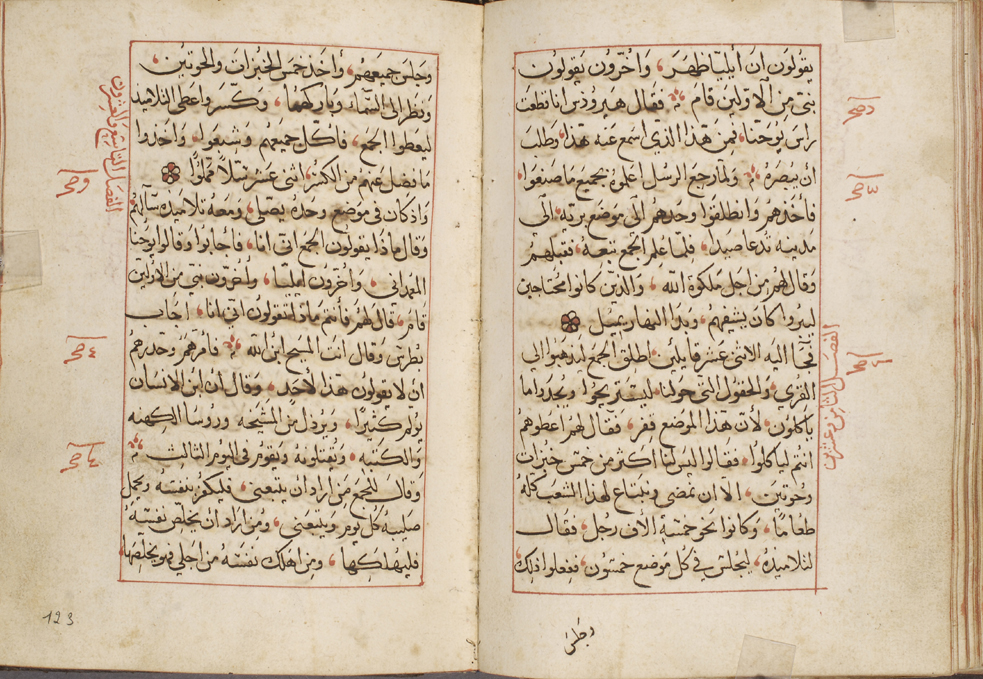 يقولون أن أيليا ظهر، وآخرون يقولون
نبى من الأولين قام فقال هيرودس أنا قطعت
راس يوحنا، فمن هذا الذي اسمع عنه هذا وطلب
أن يبصره ولما رجع الرسل اعلموه بجميع ما صنعوا
فأخذهم وانطلقوا وحدهم إلى موضع برية إلى
مدينه تدعا صيدا، فلما علم الجمع تبعه فقبلهم
وقال لهم من اجل ملكوة الله والذين كانوا محتاجين
ليبروا كان يشفيهم، وبدا النهار يميل
فجا اليه الاثنى عشر قايلين اطلق الجمع ليذهبوا إلى
القري والحقول التي حولنا ليستريحوا ويجدوا ما
ياكلون، لأن هذا الموضع قفر، فقال لهم اعطوهم
انتم لياكلوا، فقالوا ليس لنا اكثر من خمس خبزات
وحوتين، الا ان نمضي ونبتاع لهذا الشعب كله
طعامًا، وكانوا نحو خمسة الاف رجل، فقال
لتلاميذه، ليجلس في كل موضع خمسون، ففعلوا ذلك
وجلس
الفصل الثامن وعشرين
وجلس جميعهم، وأخذ خمس الخبزات والحوتين،
ونظر الى السماء وباركهما، وكسر واعطى التلاميذ
ليعطوا الجمع، فاكل جميعهم وشبعوا، واخذوا
ما فضل عنهم من الكسر، اثنى عشر سلًا مملوًا
واذ كان في موضع وحده يصلي، ومعه تلاميذه سألهم
وقال ماذا يقولون الجمع انى انا، فأجابوا وقالوا يوحنا
المعمداني، وآخرون ايليا، وآخرون نبي من الأولين
قام، قال لهم فأنتم ماذا تقولون اني انا، اجاب
بطرس وقال انت المسيح ابن الله فامرهم وحذرهم
أن لا يقولون هذا لأحد، وقال أن ابن الانسان
يولم كثيرًا، ويرذل من المشيخه وروسا الكهنه
والكتبه، ويقتلونه ويقوم في اليوم الثالث
وقال للجمع من اراد ان يتبعني، فليكفر بنفسه ويحمل
صليبه كل يوم ويتبعني، ومن اراد أن يخلص نفسه
فليهلكها، ومن اهلك نفسه من اجلي فهو يخلصها
الفصل التاسع والعشرون
123